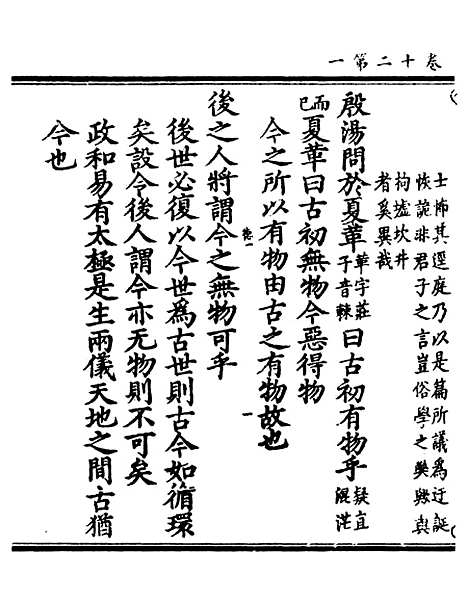 卷十二第一
士怖其逕庭乃以是篇所議為迂誕
恢詭非君子之言豈俗學之樊與真
拘墟坎井
者奚異哉
殷湯問於夏革革字莊子音棘曰古初有物乎疑宜混茫
而已夏革曰古初無物今惡得物
今之所以有物由古之有物故也
後之人將謂今之無物可乎
後世必復以今世為古世則古今如循環
矣設令後人謂今亦无物則不可矣
政和易有太極是生兩儀天地之間古猶
今也